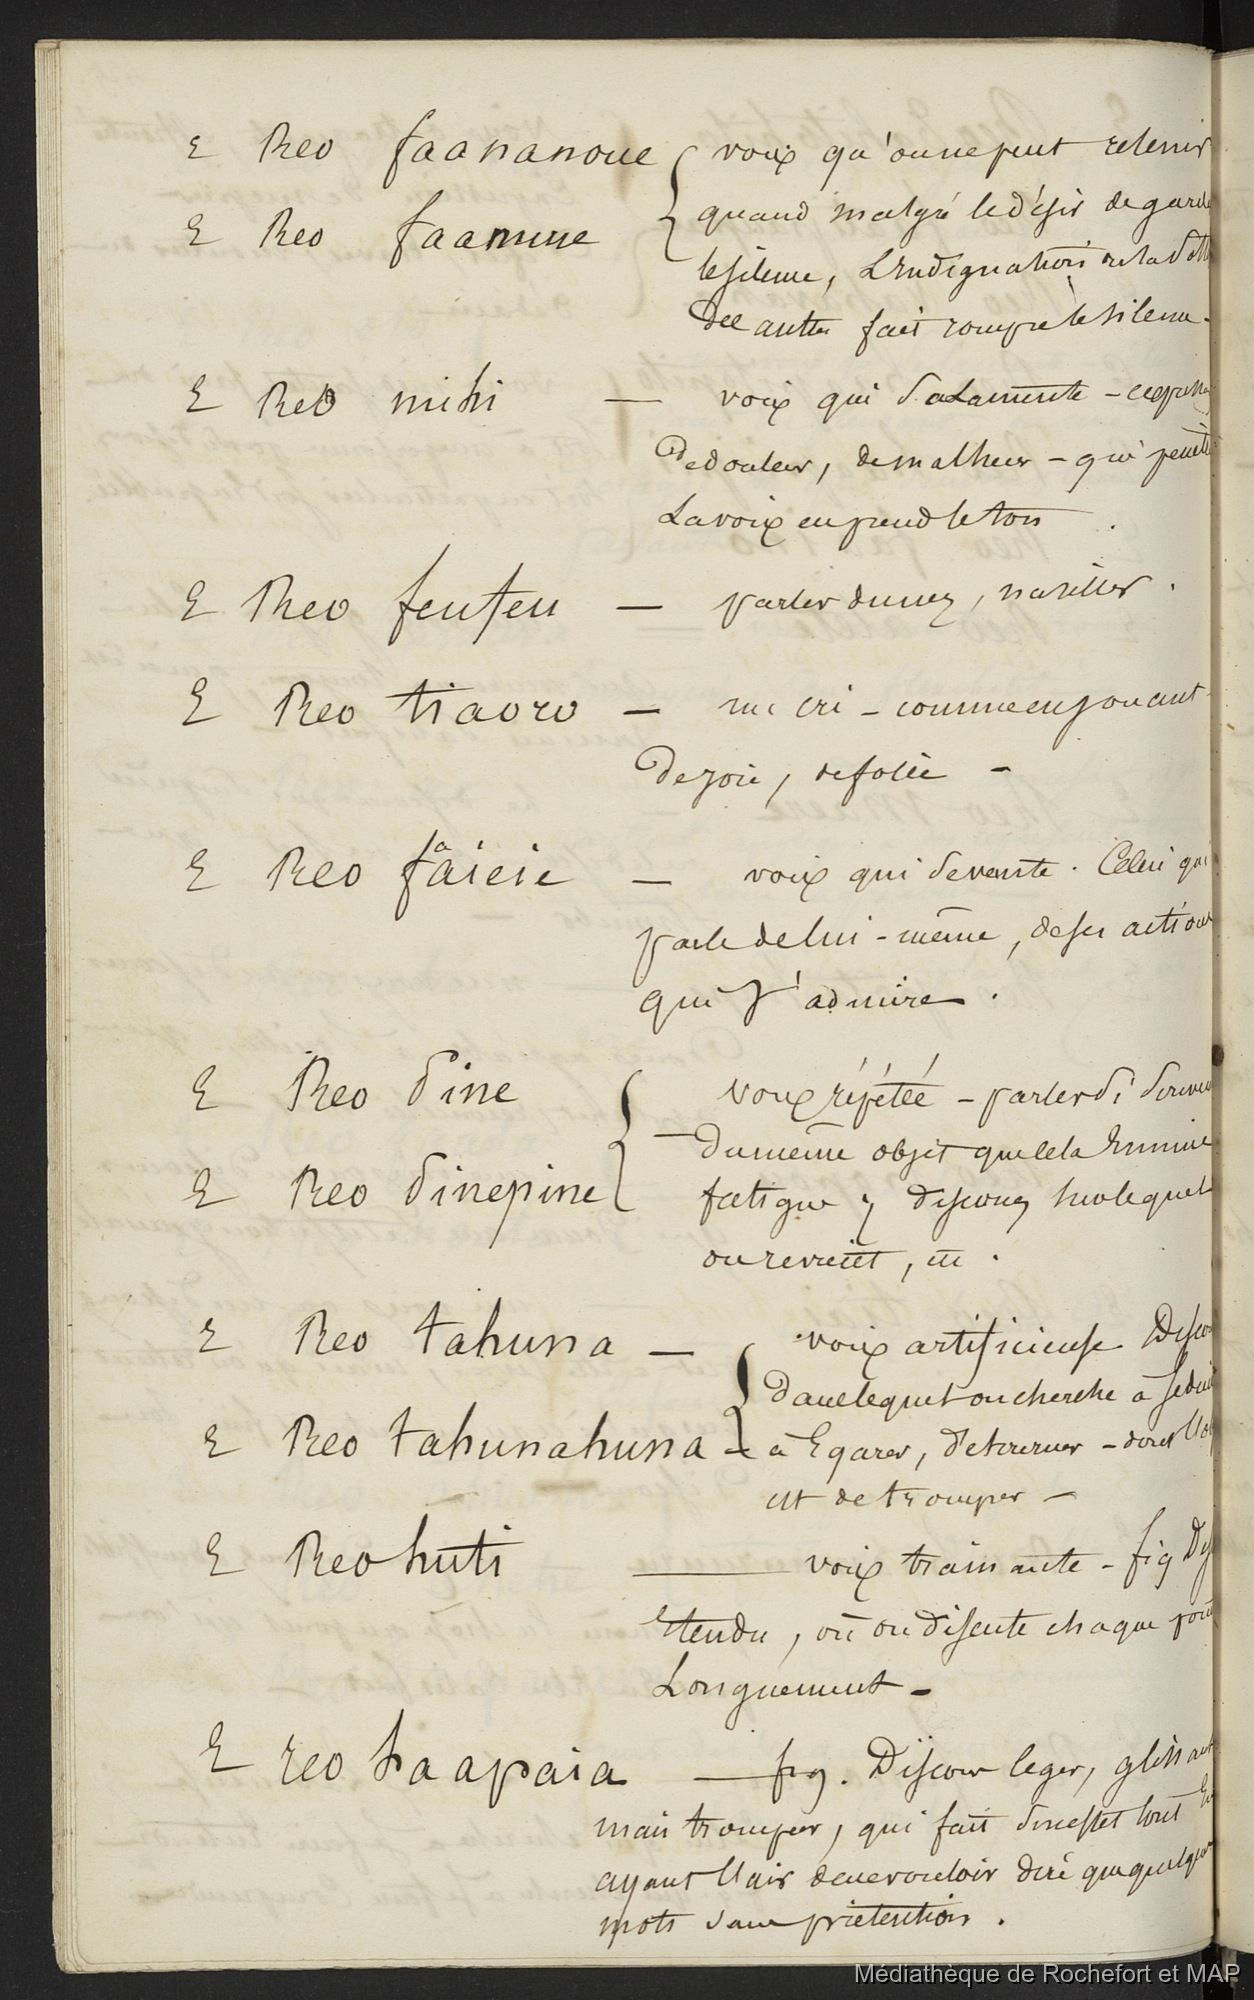 E Reo faananoue { voix qu'on ne peut retenir
E Reo faamue { quand malgré le désir de garder
le silence, l'indignation
des autres fait rompre le silence -
E Reo mihi — voix qui se lamente -
de douleur, de malheur - qui
La voix en prend le ton .
E Reo feufeu — parler du nez, nasiller .
E Reo tiaoro — un cri - comme en jouant
de joie, de folie -
E Reo fâieie — voix qui se vante . Celui qui
parle de lui-même, de ses actions
qui s'admire .
E Reo pine { voix répétée - parler si souvent
du même objet que cela
E Reo pinepine { fatigue ; discours sur lequel
on revient, .
E Reo tahuna — { voix artificieuse
dans lequel on cherche à
E Reo tahunahuna - à Egarer, détourner - dont
est de tromper —
E Reo huti — voix trainante - fig
Etendu, où on discute chaque
Longuement -
E reo haapaia — fig. Discours leger, glissant
mais trompeur, qui fait
ayant l'air de ne vouloir dire que quelques
mots sans prétention .
Médiathèque de Rochefort et MAP